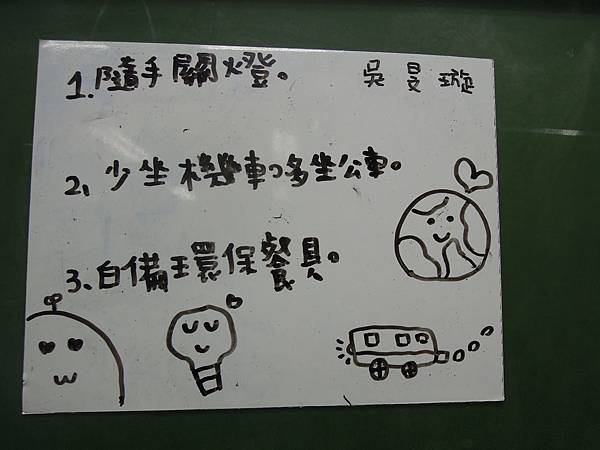 1.隨手關燈。 吳旻璇
2、少坐機車，多坐公車。
3、自備環保餐具。